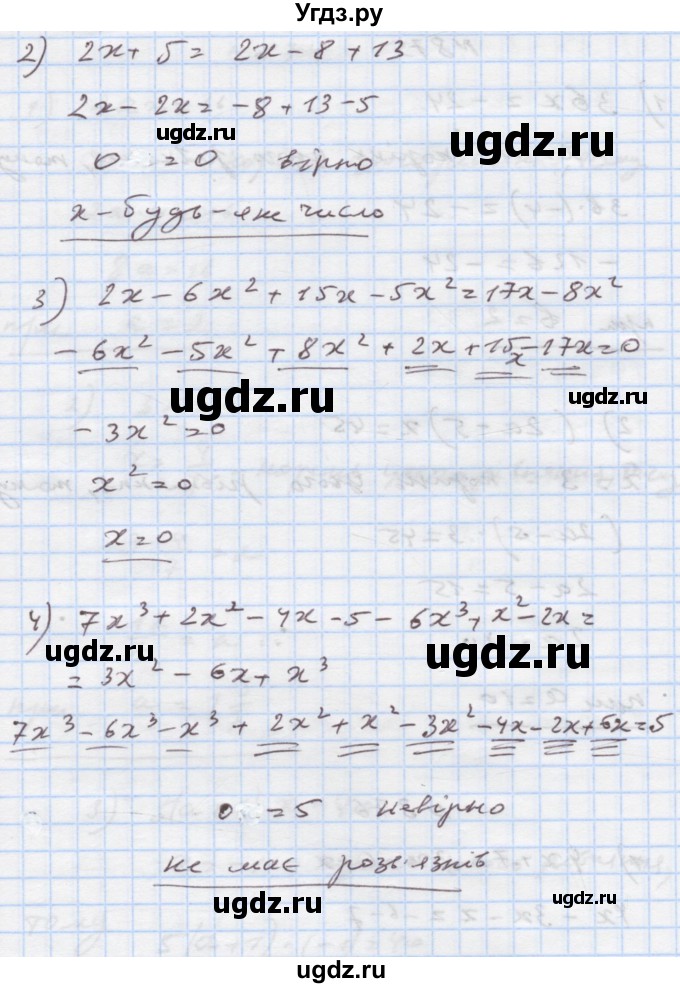 Угдз.ру
2) 2x + 5 = 2x - 8 + 13
2x - 2x = -8 + 13 - 5
ugdz.ru
ugdz.ru
0 = 0 вірно
x - будь-яке число
3) 2x - 6x² + 15x - 5x² = 17x - 8x²
- 6x² - 5x² + 8x² + 2x + 15x - 17x = 0
ugdz.ru
ugdz.ru
- 3x² = 0
x² = 0
x = 0
4) 7x³ + 2x² - 4x - 5 - 6x³ + x² - 2x =
ugdz.ru
ugdz.ru
= 3x² - 6x + x³
7x³ - 6x³ - x³ + 2x² + x² - 3x² - 4x - 2x + 6x = 5
0 = 5 невірно
не має розв'язків
ugdz.ru
ugdz.ru
ugdz.ru